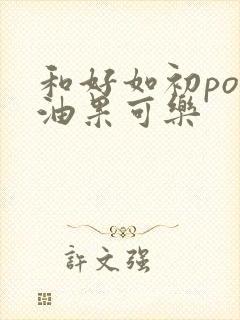 和好如初po
油果可樂
許文强